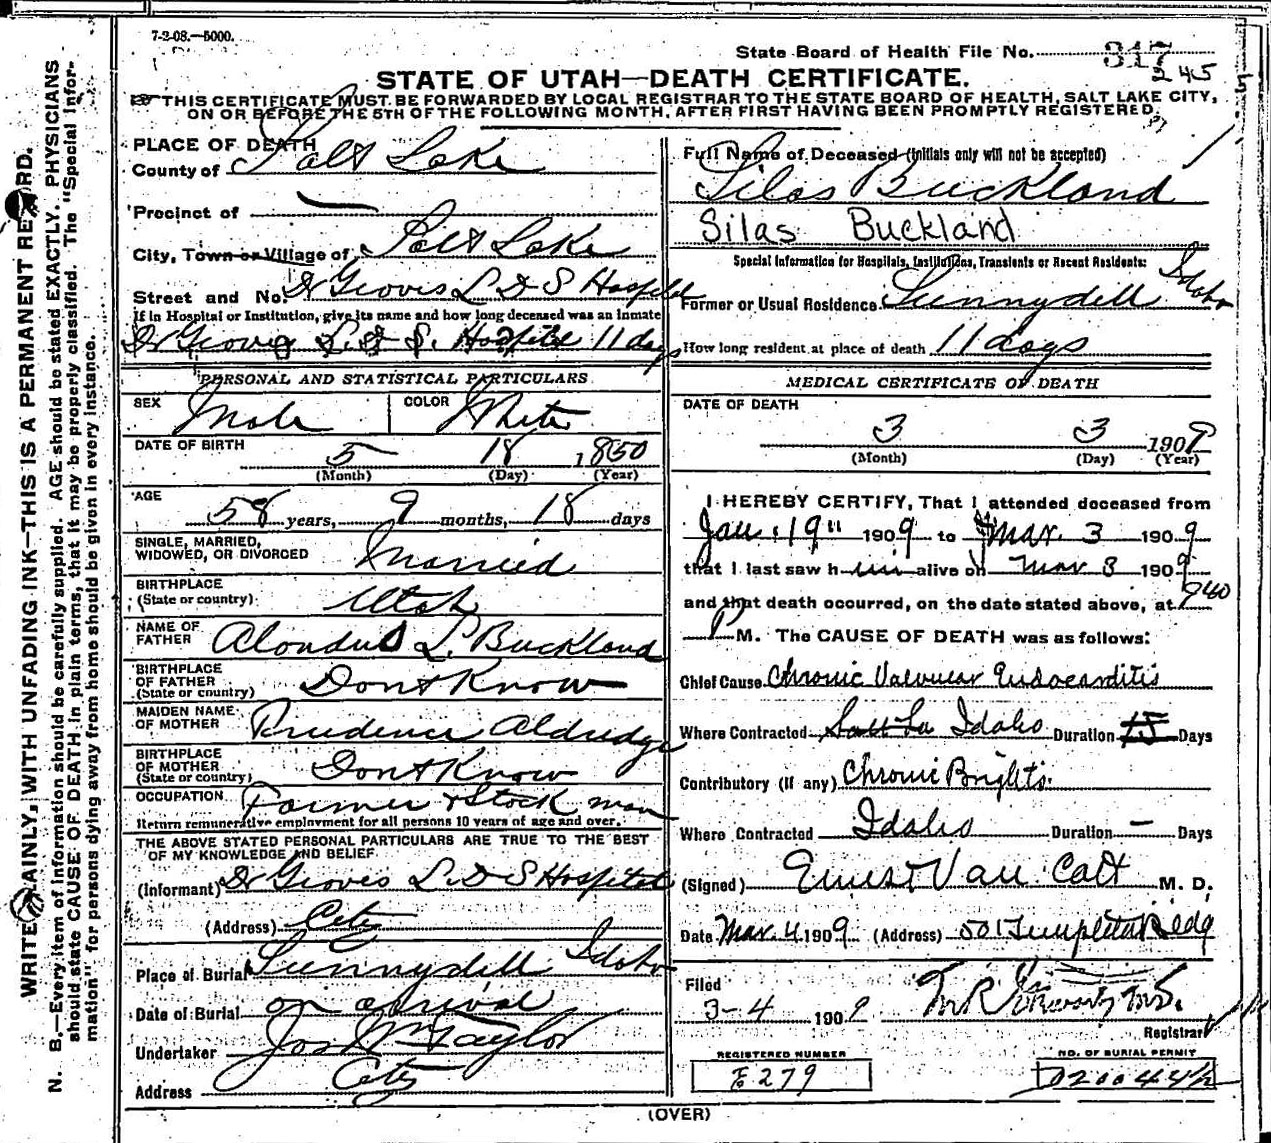 7-2-08.—5000.
State Board of Health File No. 317
245
STATE OF UTAH—DEATH CERTIFICATE.
THIS CERTIFICATE MUST BE FORWARDED BY LOCAL REGISTRAR TO THE STATE BOARD OF HEALTH, SALT LAKE CITY,
ON OR BEFORE THE 5TH OF THE FOLLOWING MONTH, AFTER FIRST HAVING BEEN PROMPTLY REGISTERED.
WRITE PLAINLY, WITH UNFADING INK—THIS IS A PERMANENT RECORD.
N. B.—Every item of information should be carefully supplied. AGE should be stated EXACTLY. PHYSICIANS
should state CAUSE OF DEATH in plain terms, that it may be properly classified. The "Special Infor-
mation" for persons dying away from home should be given in every instance.
PLACE OF DEATH
County of Salt Lake
Precinct of —
City, Town or Village of Salt Lake
Street and No. Dr Groves L D S Hospital
If in Hospital or Institution, give its name and how long deceased was an inmate
Dr Groves L. D. S. Hospital 11 days
PERSONAL AND STATISTICAL PARTICULARS
SEX Male COLOR White
DATE OF BIRTH 5 18 1850
(Month) (Day) (Year)
AGE
58 years, 9 months, 18 days
SINGLE, MARRIED,
WIDOWED, OR DIVORCED Married
BIRTHPLACE
(State or country) Utah
NAME OF
FATHER Alondus L. Buckland
BIRTHPLACE
OF FATHER
(State or country) Dont Know
MAIDEN NAME
OF MOTHER Prudence Aldredge
BIRTHPLACE
OF MOTHER
(State or country) Dont Know
OCCUPATION Farmer & Stock man
Return remunerative employment for all persons 10 years of age and over.
THE ABOVE STATED PERSONAL PARTICULARS ARE TRUE TO THE BEST
OF MY KNOWLEDGE AND BELIEF
(Informant) Dr Groves L. D S Hospital
(Address) City
Place of Burial Sunnydell Idaho
Date of Burial on arrival
Undertaker Jos Wm Taylor
Address City
Full Name of Deceased (initials only will not be accepted)
Silas Buckland
Silas Buckland
Special Information for Hospitals, Institutions, Transients or Recent Residents:
Former or Usual Residence Sunnydell Idaho
How long resident at place of death 11 days
MEDICAL CERTIFICATE OF DEATH
DATE OF DEATH
3 3 1909
(Month) (Day) (Year)
I HEREBY CERTIFY, That I attended deceased from
Jan. 19" 1909 to Mar. 3 1909
that I last saw him alive on Mar 3 1909
and that death occurred, on the date stated above, at 940
P M. The CAUSE OF DEATH was as follows:
Chief Cause Chronic Valvular Endocarditis
Where Contracted Salt La Idaho Duration 15 Days
Contributory (if any) Chronic Brights.
Where Contracted Idaho Duration — Days
(Signed) Ernest Van Cott M. D.
Date Mar. 4. 1909 (Address) 501 Templeton Bldg
Filed
3-4 1909
Registrar
REGISTERED NUMBER
E 279
NO. OF BURIAL PERMIT
(OVER)